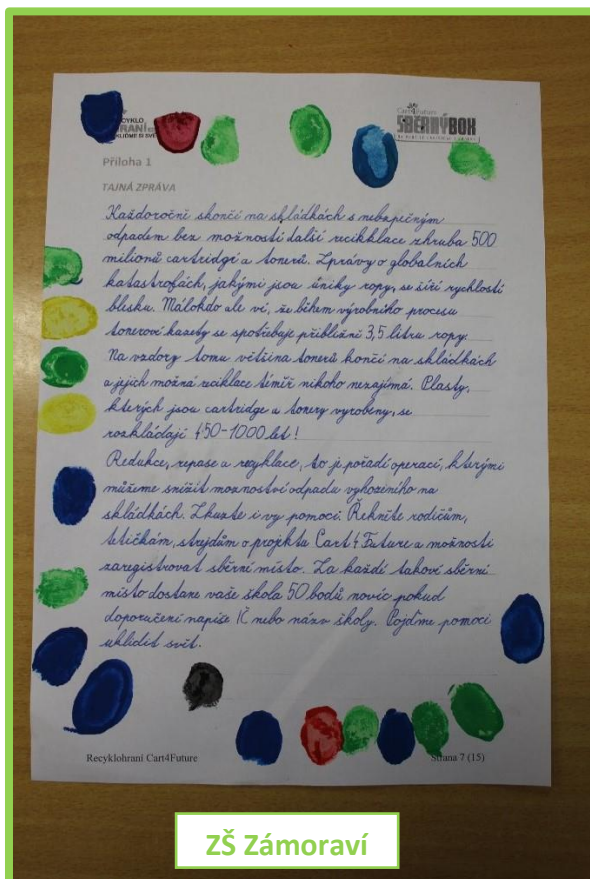 CYKLO
HRANÍ
KLIĎME SI SVĚT
Cart4Future
SBĚRNÝBOX
Příloha 1
TAJNÁ ZPRÁVA
Každoročně skončí na skládkách s nebezpečným
odpadem bez možností další recikklace zhruba 500
milionů cartridgí a tonerů. Zprávy o globalních
katastrofách, jakými jsou úniky ropy, se šíří rychlostí
blesku. Málokdo ale ví, že během výrobního procesu
tonerové kazety se spotřebuje přibližně 3,5 litru ropy.
Na vzdory tomu většina tonerů končí na skládkách
a jejich možná reciklace téměř nikoho nezajímá. Plasty,
kterých jsou cartridge a tonery vyrobeny, se
rozkládají 450-1000 let!
Redukce, repase a recyklace, to je pořadí operací, kterými
můžeme snížit moznoství odpadu vyhozeního na
skládkách. Zkuzte i vy pomoci. Řekněte rodičům,
tetičkám, strejdům o projektu Cart4Future a možnosti
zaregistrovat sběrní místo. Za každí takoví sběrní
místo dostane vaše škola 50 bodů novíc pokud
doporučení napíše IČ nebo název školy. Pojďme pomoci
uklidit svět.
Recyklohraní Cart4Future
Strana 7 (15)
ZŠ Zámoraví